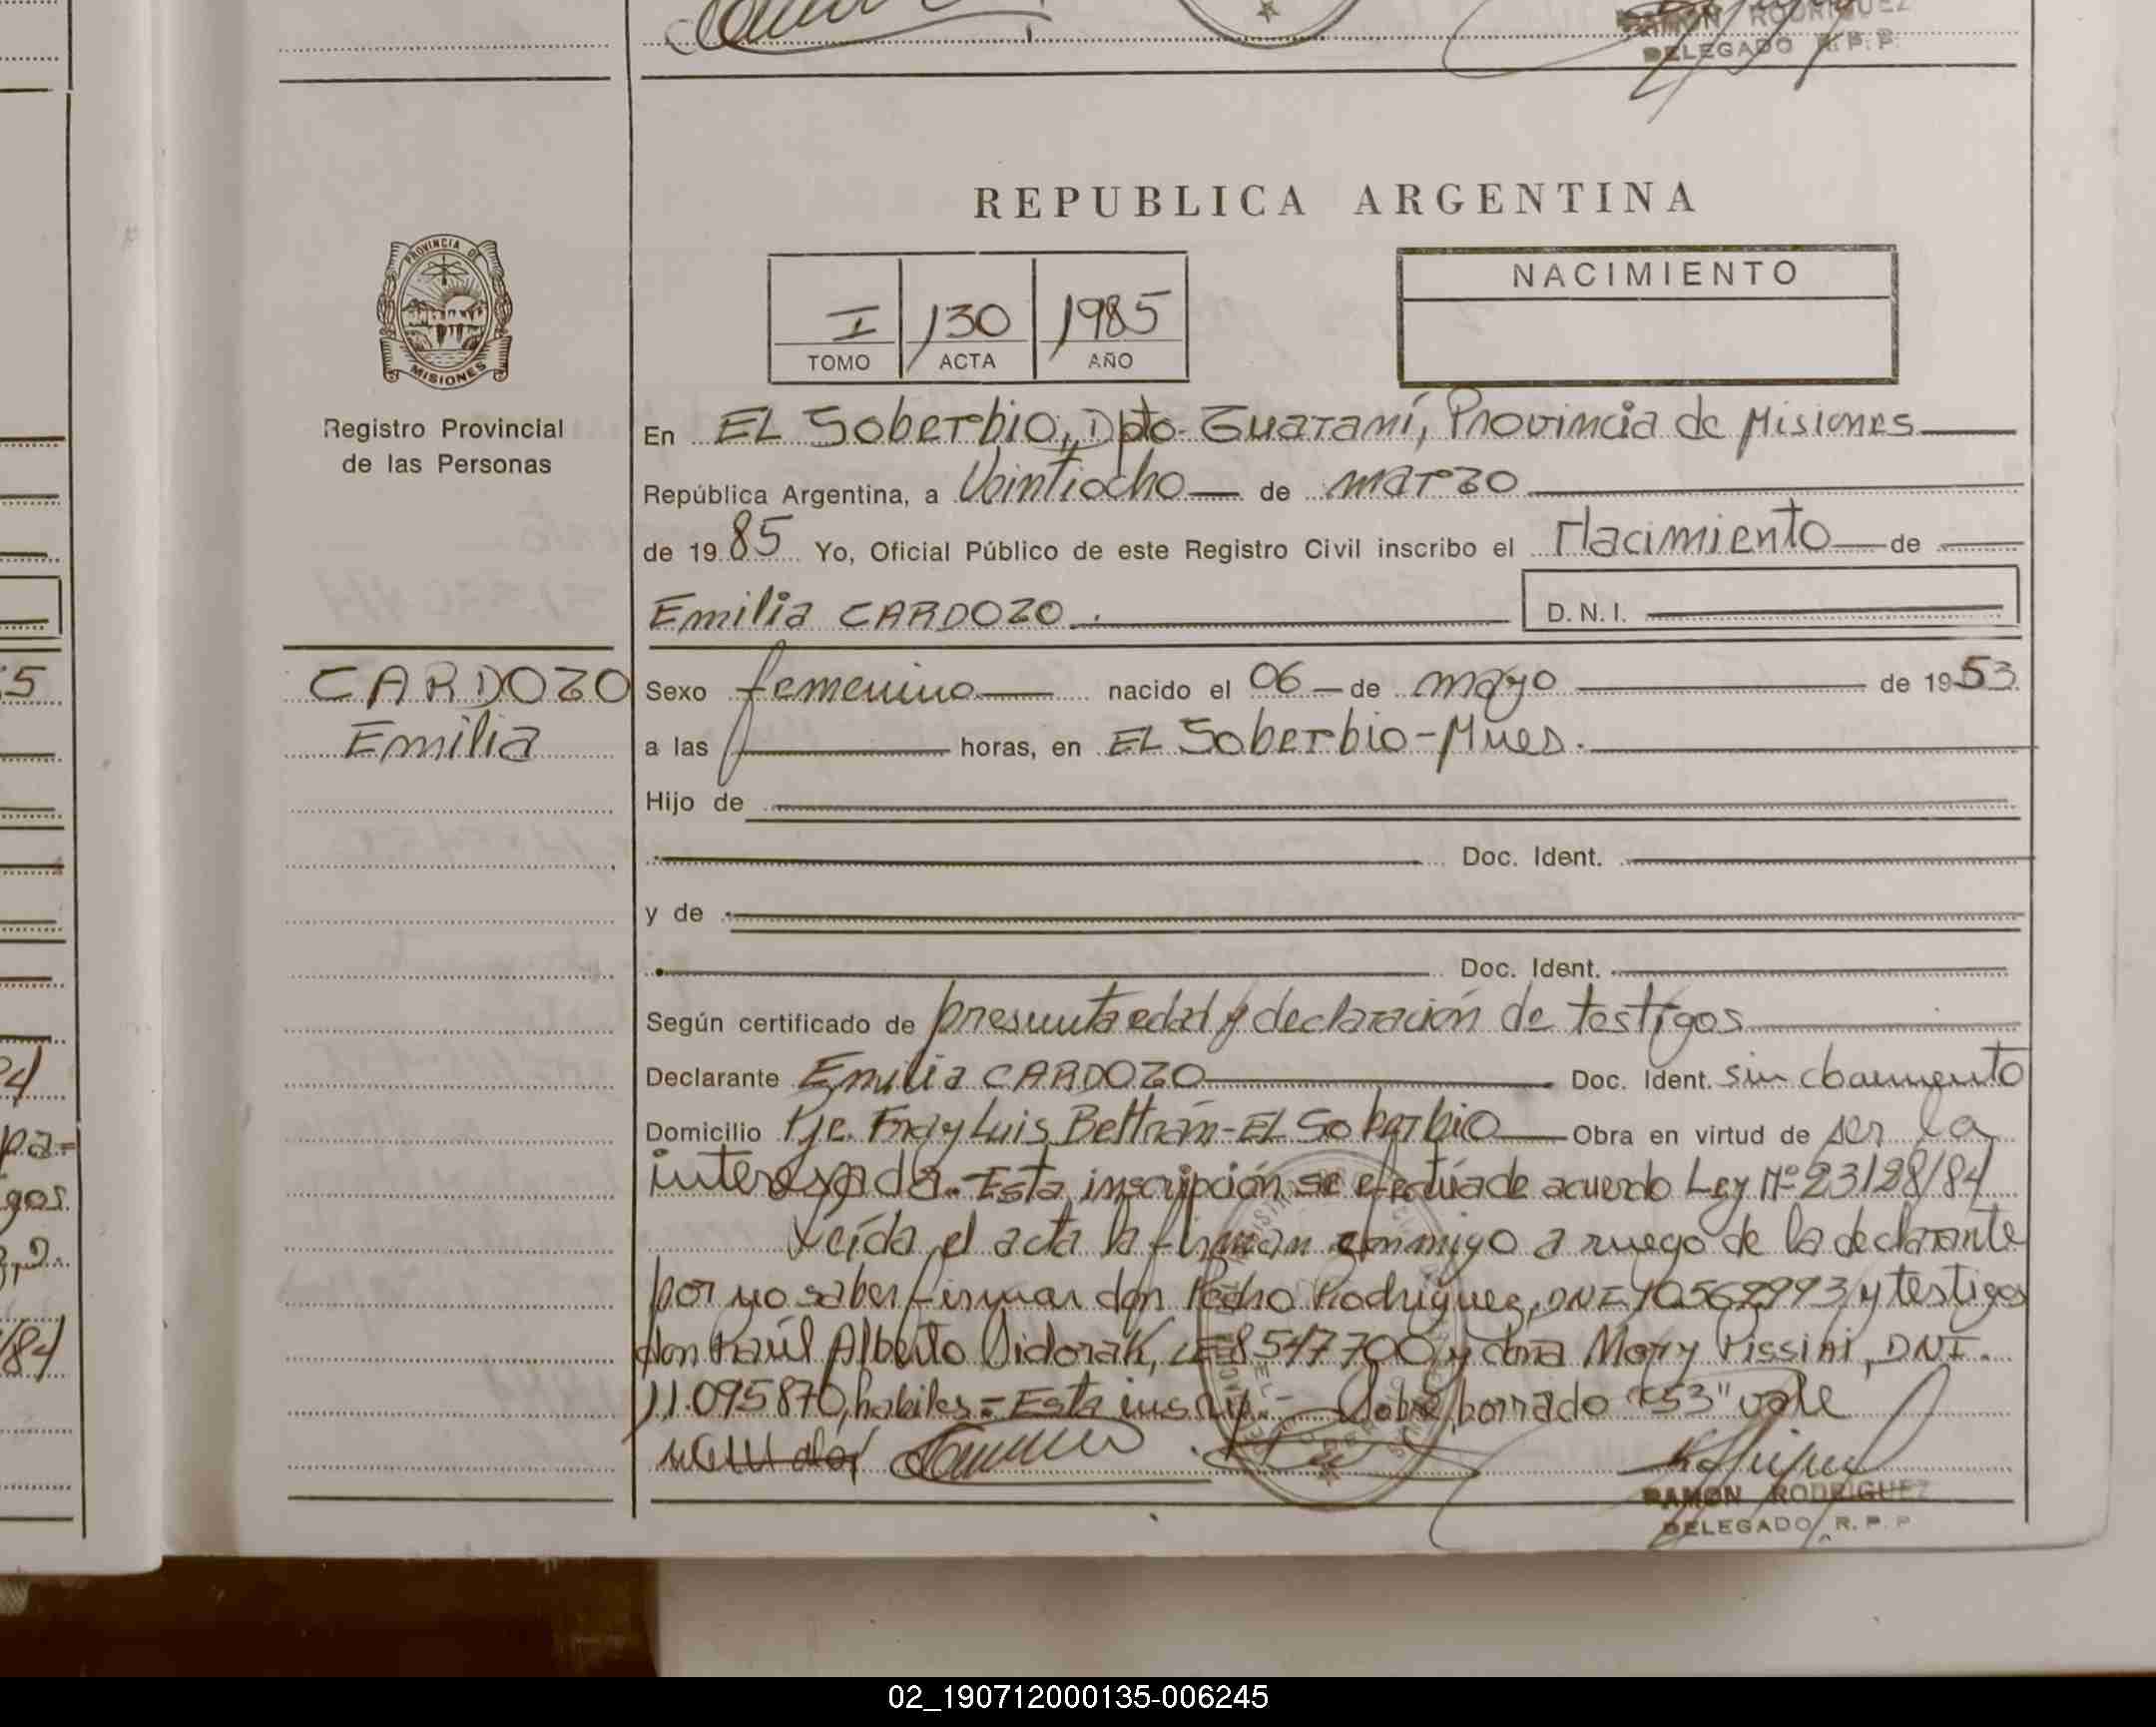 RAMON RODRIGUEZ
DELEGADO R. P. P.
REPUBLICA ARGENTINA
PROVINCIA DE
MISIONES
Registro Provincial
de las Personas
I 130 1985
TOMO ACTA AÑO
NACIMIENTO
En EL Soberbio, Dpto. Guaraní, Provincia de Misiones
República Argentina, a Veintiocho de marzo
de 1985 Yo, Oficial Público de este Registro Civil inscribo el Nacimiento de
Emilia CARDOZO. D.N.I.
CARDOZO
Emilia
Sexo femenino nacido el 06 de mayo de 1953
a las horas, en EL Soberbio-Mnes.
Hijo de
Doc. Ident.
y de
Doc. Ident.
Según certificado de presunta edad y declaración de testigos
Declarante Emilia CARDOZO Doc. Ident. sin documento
Domicilio Pje. Fray Luis Beltrán-EL Soberbio Obra en virtud de ser la
interesada.-Esta inscripción se efectúa de acuerdo Ley Nº 23128/84
Leída el acta la firman conmigo a ruego de la declarante
por no saber firmar don Pedro Rodriguez, DNI 10562993 y testigos
don Raúl Alberto Vidorak, LE 8547700 y doña Mary Pissini, DNI.
11.095870, habiles.= Esta inscrip.- Sobre borrado "53" vale
RAMON RODRIGUEZ
DELEGADO R. P. P.
02_190712000135-006245